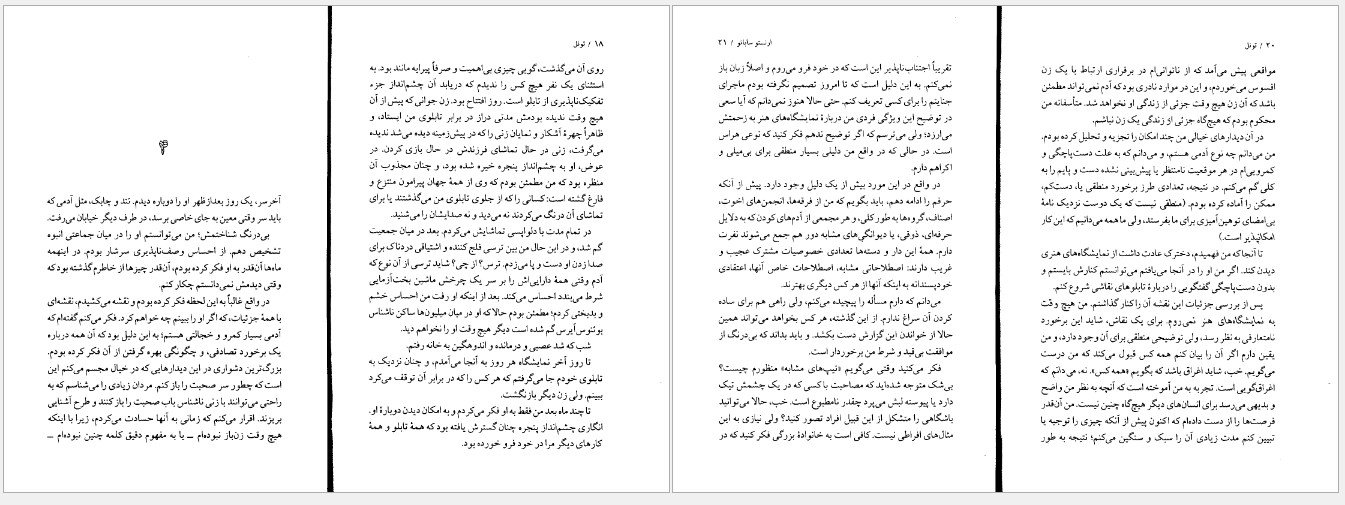 ۱۸ / تونل
روی آن می‌گذشت، گویی چیزی بی‌اهمیت و صرفاً پیرایه مانند بود. به
استثنای یک نفر هیچ کس را ندیدم که دریابد آن چشم‌انداز جزء
تفکیک‌ناپذیری از تابلو است. روز افتتاح بود. زن جوانی که پیش از آن
هیچ وقت ندیده بودمش مدتی دراز در برابر تابلوی من ایستاد، و
ظاهراً چهرهٔ آشکار و نمایان زنی را که در پیش‌زمینه دیده می‌شد ندیده
می‌گرفت، زنی در حال تماشای فرزندش در حال بازی کردن. در
عوض، او به چشم‌انداز پنجره خیره شده بود، و چنان مجذوب آن
منظره بود که من مطمئن بودم که وی از همهٔ جهان پیرامون منتزع و
فارغ گشته است: کسانی را که از جلوی تابلوی من می‌گذشتند یا برای
تماشای آن درنگ می‌کردند نه می‌دید و نه صدایشان را می‌شنید.
در تمام مدت با دلواپسی تماشایش می‌کردم. بعد در میان جمعیت
گم شد، و در این حال من بین ترسی فلج کننده و اشتیاقی دردناک برای
صدا زدن او دست و پا می‌زدم. ترس؟ از چی؟ شاید ترسی از آن نوع که
آدم وقتی همهٔ دارایی‌اش را بر سر یک چرخش ماشین بخت‌آزمایی
شرط می‌بندد احساس می‌کند. بعد از اینکه او رفت من احساس خشم
و بدبختی کردم؛ مطمئن بودم حالا که او در میان میلیون‌ها ساکن ناشناس
بوئنوس‌آیرس گم شده است دیگر هیچ وقت او را نخواهم دید.
شب که شد عصبی و درمانده و اندوهگین به خانه رفتم.
تا روز آخر نمایشگاه هر روز به آنجا می‌آمدم، و چنان نزدیک به
تابلوی خودم جا می‌گرفتم که هر کس را که در برابر آن توقف می‌کرد
ببینم. ولی زن دیگر بازنگشت.
تا چند ماه بعد من فقط به او فکر می‌کردم و به امکان دیدن دوبارهٔ او.
انگاری چشم‌انداز پنجره چنان گسترش یافته بود که همهٔ تابلو و همهٔ
کارهای دیگر مرا در خود فرو خورده بود.
آخر سر، یک روز بعدازظهر او را دوباره دیدم. تند و چابک، مثل آدمی که
باید سر وقتی معین به جای خاصی برسد، در طرف دیگر خیابان می‌رفت.
بی‌درنگ شناختمش؛ من می‌توانستم او را در میان جماعتی انبوه
تشخیص دهم. از احساس وصف‌ناپذیری سرشار بودم. در اینهمه
ماه‌ها آن‌قدر به او فکر کرده بودم، آن‌قدر چیزها از خاطرم گذشته بود که
وقتی دیدمش نمی‌دانستم چکار کنم.
در واقع غالباً به این لحظه فکر کرده بودم و نقشه می‌کشیدم، نقشه‌ای
با همهٔ جزئیات، که اگر او را ببینم چه خواهم کرد. فکر می‌کنم گفته‌ام که
آدمی بسیار کمرو و خجالتی هستم؛ به این دلیل بود که آن همه درباره
یک برخورد تصادفی، و چگونگی بهره گرفتن از آن فکر کرده بودم.
بزرگ‌ترین دشواری در این دیدارهایی که در خیال مجسم می‌کنم این
است که چطور سر صحبت را باز کنم. مردان زیادی را می‌شناسم که به
راحتی می‌توانند با زنی ناشناس باب صحبت را باز کنند و طرح آشنایی
بریزند. اقرار می‌کنم که زمانی به آنها حسادت می‌کردم، زیرا با اینکه
هیچ وقت زن‌باز نبوده‌ام ــ یا به مفهوم دقیق کلمه چنین نبوده‌ام ــ
۲۰ / تونل
مواقعی پیش می‌آمد که از ناتوانی‌ام در برقراری ارتباط با یک زن
افسوس می‌خوردم، و این در موارد نادری بود که آدم نمی‌تواند مطمئن
باشد که آن زن هیچ وقت جزئی از زندگی او نخواهد شد. متأسفانه من
محکوم بودم که هیچ‌گاه جزئی از زندگی یک زن نباشم.
در آن دیدارهای خیالی من چند امکان را تجزیه و تحلیل کرده بودم.
من می‌دانم چه نوع آدمی هستم، و می‌دانم که به علت دست‌پاچگی و
کمرویی‌ام در هر موقعیت نامنتظر یا پیش‌بینی نشده دست و پایم را به
کلی گم می‌کنم. در نتیجه، تعدادی طرز برخورد منطقی یا، دست‌کم،
ممکن را آماده کرده بودم. (منطقی نیست که یک دوست نزدیک نامهٔ
بی‌امضای توهین‌آمیزی برای ما بفرستد، ولی ما همه می‌دانیم که این کار
امکانپذیر است.)
تا آنجا که من فهمیدم، دخترک عادت داشت از نمایشگاه‌های هنری
دیدن کند. اگر من او را در آنجا می‌یافتم می‌توانستم کنارش بایستم و
بدون دست‌پاچگی گفتگویی را دربارهٔ تابلوهای نقاشی شروع کنم.
پس از بررسی جزئیات این نقشه آن را کنار گذاشتم. من هیچ وقت
به نمایشگاه‌های هنر نمی‌روم. برای یک نقاش، شاید این برخورد
نامتعارفی به نظر رسد، ولی توضیحی منطقی برای آن وجود دارد، و من
یقین دارم اگر آن را بیان کنم همه کس قبول می‌کند که من درست
می‌گویم. خب، شاید اغراق باشد که بگویم «همه کس». نه، می دانم که
اغراق‌گویی است. تجربه به من آموخته است که آنچه به نظر من واضح
و بدیهی می‌رسد برای انسان‌های دیگر هیچ‌گاه چنین نیست. من آن‌قدر
فرصت‌ها را از دست داده‌ام که اکنون پیش از آنکه چیزی را توجیه یا
تبیین کنم مدت زیادی آن را سبک و سنگین می‌کنم؛ نتیجه به طور
ارنستو ساباتو / ۲۱
تقریباً اجتناب‌ناپذیر این است که در خود فرو می‌روم و اصلاً زبان باز
نمی‌کنم. به این دلیل است که تا امروز تصمیم نگرفته بودم ماجرای
جنایتم را برای کسی تعریف کنم. حتی حالا هنوز نمی‌دانم که آیا سعی
در توضیح این ویژگی فردی من دربارهٔ نمایشگاه‌های هنر به زحمتش
می‌ارزد؛ ولی می‌ترسم که اگر توضیح ندهم فکر کنید که نوعی هراس
است. در حالی که در واقع من دلیلی بسیار منطقی برای بی‌میلی و
اکراهم دارم.
در واقع در این مورد بیش از یک دلیل وجود دارد. پیش از آنکه
حرفم را ادامه دهم، باید بگویم که من از فرقه‌ها، انجمن‌های اخوت،
اصناف، گروه‌ها به طور کلی، و هر مجمعی از آدم‌های کودن که به دلایل
حرفه‌ای، ذوقی، یا دیوانگی‌های مشابه دور هم جمع می‌شوند نفرت
دارم. همهٔ این دار و دسته‌ها تعدادی خصوصیات مشترک عجیب و
غریب دارند: اصطلاحاتی مشابه، اصطلاحات خاص آنها، اعتقادی
خودپسندانه به اینکه آنها از هر کس دیگری بهترند.
می‌دانم که دارم مسأله را پیچیده می‌کنم، ولی راهی هم برای ساده
کردن آن سراغ ندارم. از این گذشته، هر کس بخواهد می‌تواند همین
حالا از خواندن این گزارش دست بکشد. و باید بداند که بی‌درنگ از
موافقت بی‌قید و شرط من برخوردار است.
فکر می‌کنید وقتی می‌گویم «تیپ‌های مشابه» منظورم چیست؟
بی‌شک متوجه شده‌اید که مصاحبت با کسی که در یک چشمش تیک
دارد یا پیوسته لبش می‌پرد چقدر نامطبوع است. خب، حالا می‌توانید
باشگاهی را متشکل از این قبیل افراد تصور کنید؟ ولی نیازی به این
مثال‌های افراطی نیست. کافی است به خانوادهٔ بزرگی فکر کنید که در